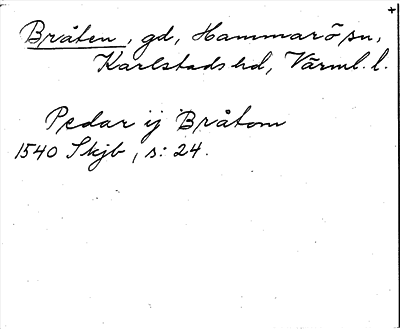 Bråten, gd, Hammarö sn,
Karlstads hd, Värml. l.
Pedar ij Bråtom
1540 Skjb, s: 24.